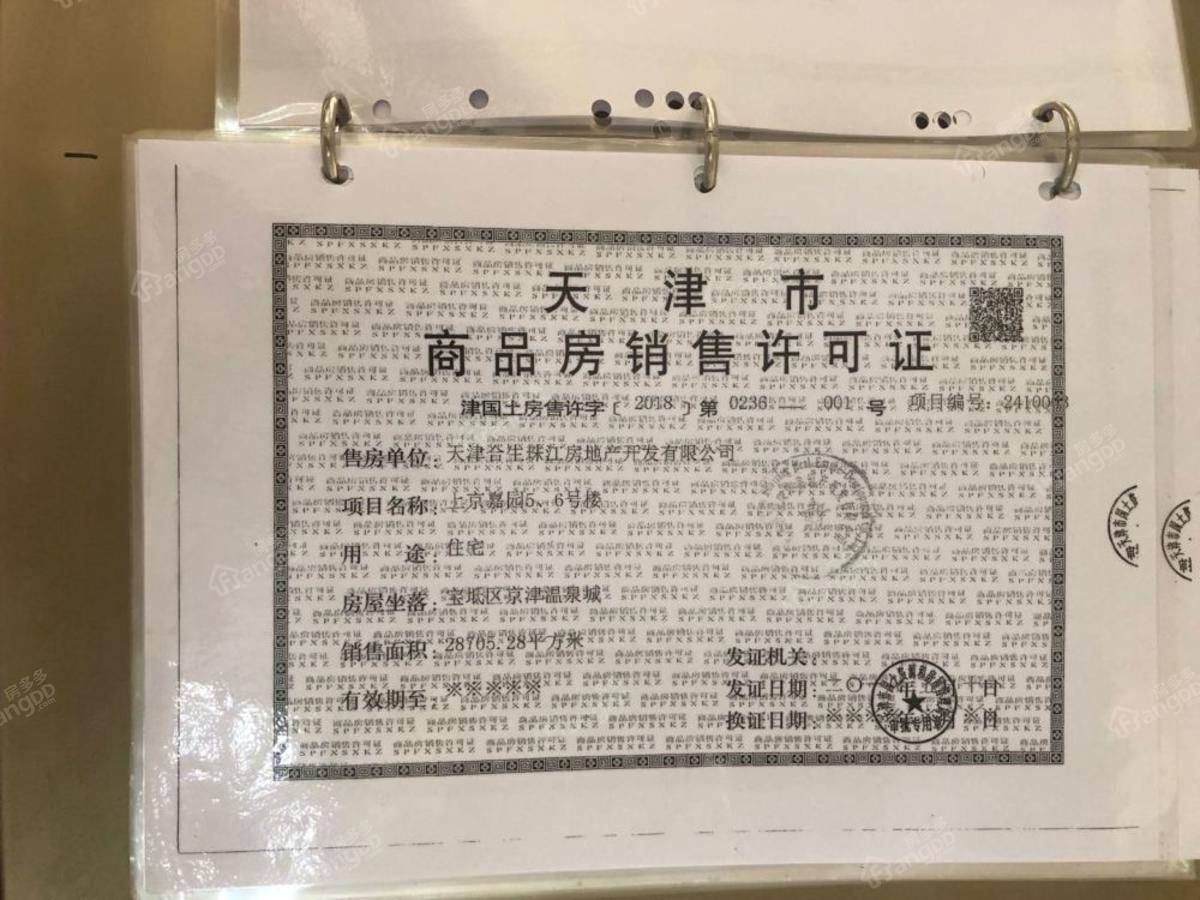 天津市
商品房销售许可证
津国土房售许字〔2018〕第0236—001号 项目编号:
售房单位: 天津合生珠江房地产开发有限公司
项目名称: 上京嘉园5、6号楼
用途: 住宅
房屋坐落: 宝坻区京津温泉城
销售面积: 28705.28平方米
有效期至: ※※※※※
发证机关:
发证日期:
换证日期: